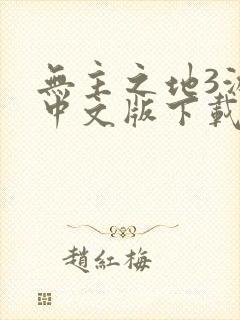 無主之地3
中文版下載
趙紅梅